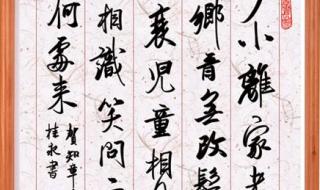 少小離家老
鄉音无改鬢
衰兒童相
相識笑問
何處来
賀知章
桂永書